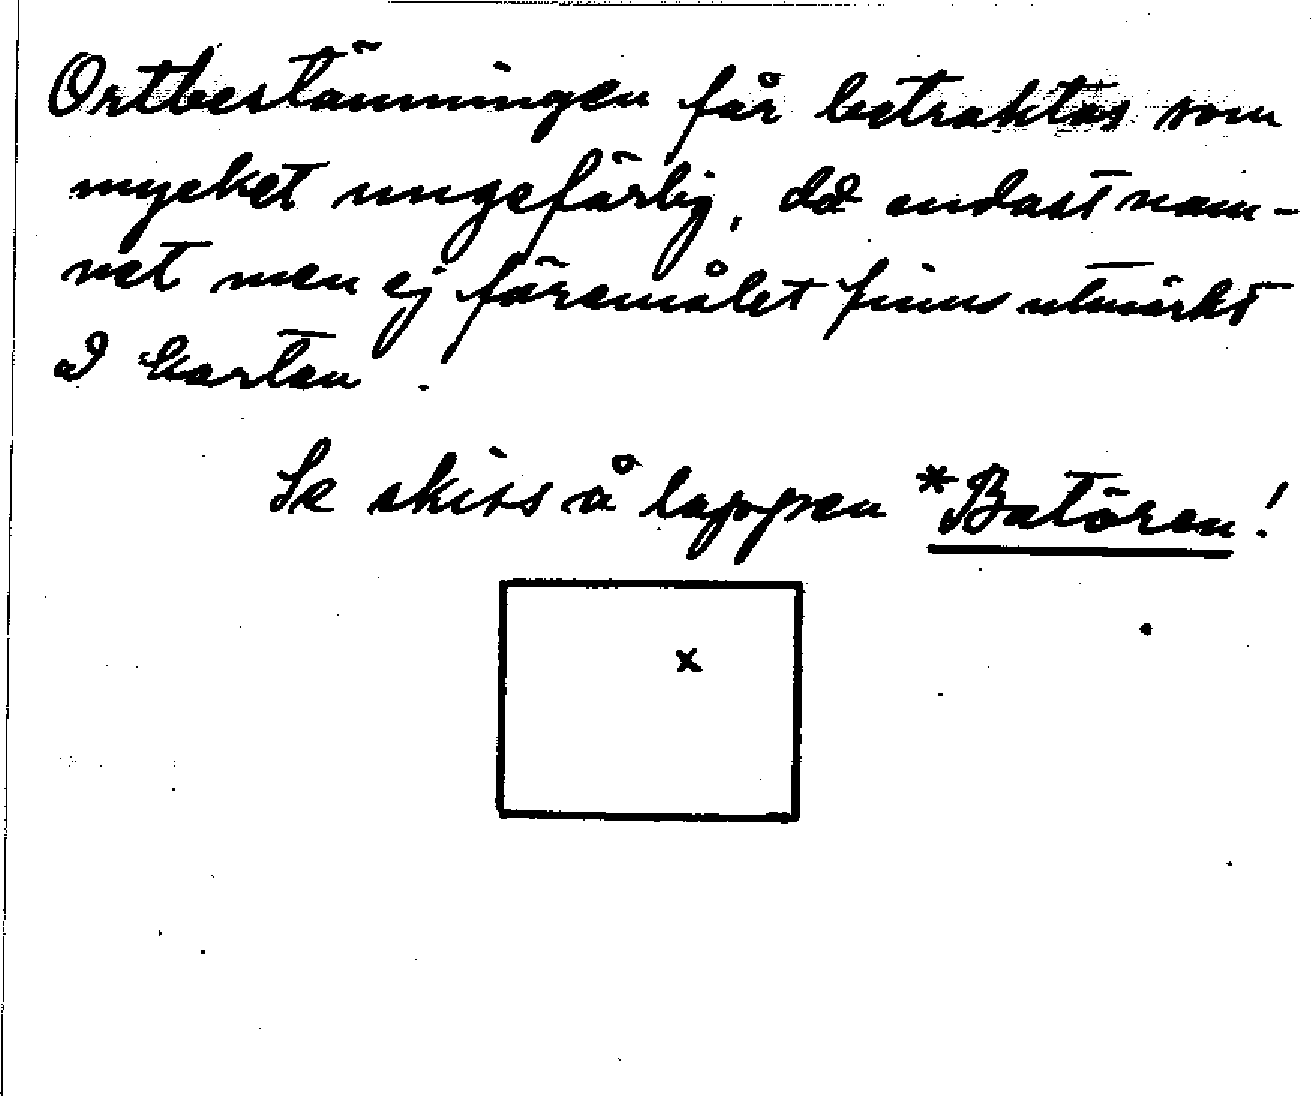 Ortbestämningen får betraktas som
mycket ungefärlig, då endast nam-
net men ej föremålet finns utmärkt
å kartan.
Se skiss å lappen *Batören!
x